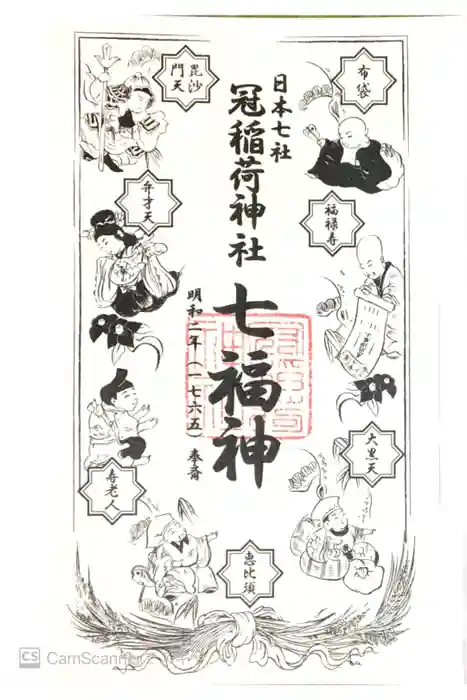 日本七社
冠稲荷神社
七福神
明和二年(一七六五)奉斎
布袋
福禄寿
大黒天
恵比須
毘沙
門天
弁才天
寿老人
CS CamScanner